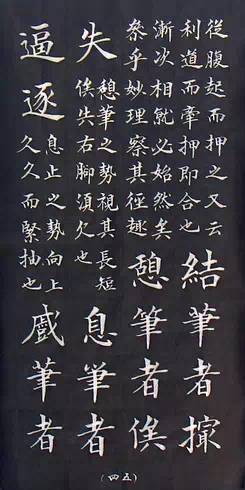 從腹起而押之又云
利道而牽押即合也
結筆者撮
漸次相就必始然矣
叅乎妙理察其徑趣
憩筆者俟
失
憩筆之勢視其長短
俟失右脚須欠也
息筆者
逼逐
息止之勢向上
久久而緊抽也
戚筆者
(四五)